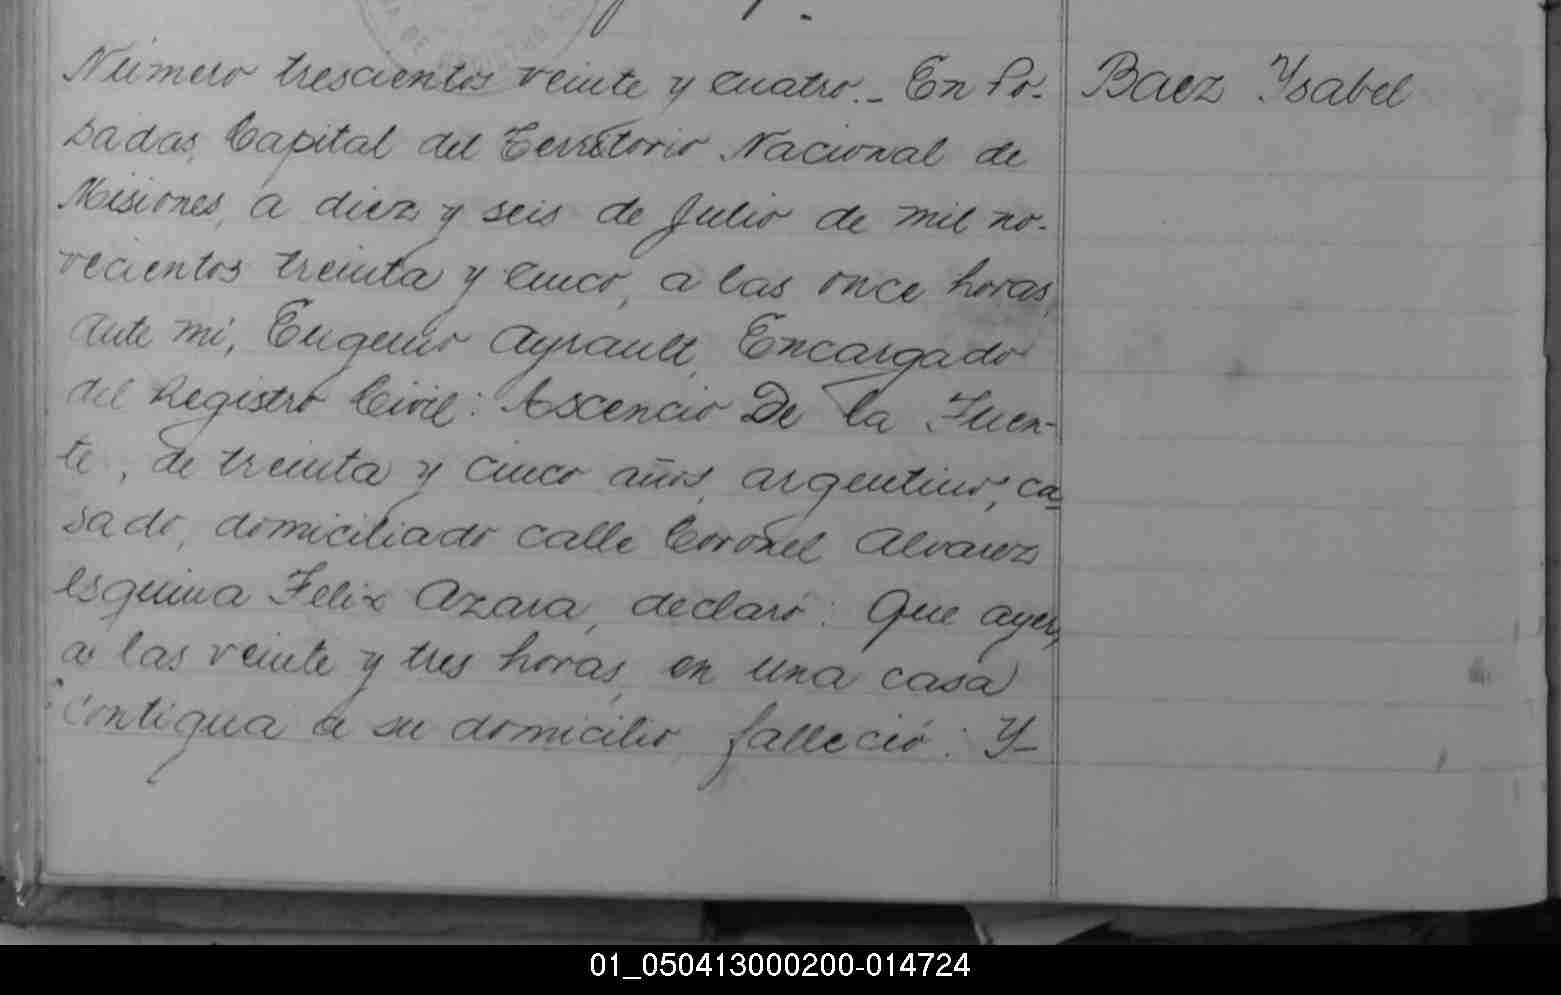 Número trescientos veinte y cuatro.- En Po-
sadas, Capital del Territorio Nacional de
Misiones, a diez y seis de Julio de mil no-
vecientos treinta y cinco, a las once horas,
ante mi, Eugenio Ayrault, Encargado
del Registro Civil: Ascencio De la Fuen-
te, de treinta y cinco años, argentino, ca-
sado, domiciliado calle Coronel Alvarez
esquina Felix Azara, declaró: Que ayer,
a las veinte y tres horas, en una casa
contigua a su domicilio, falleció: Y-
Baez Ysabel
01_050413000200-014724